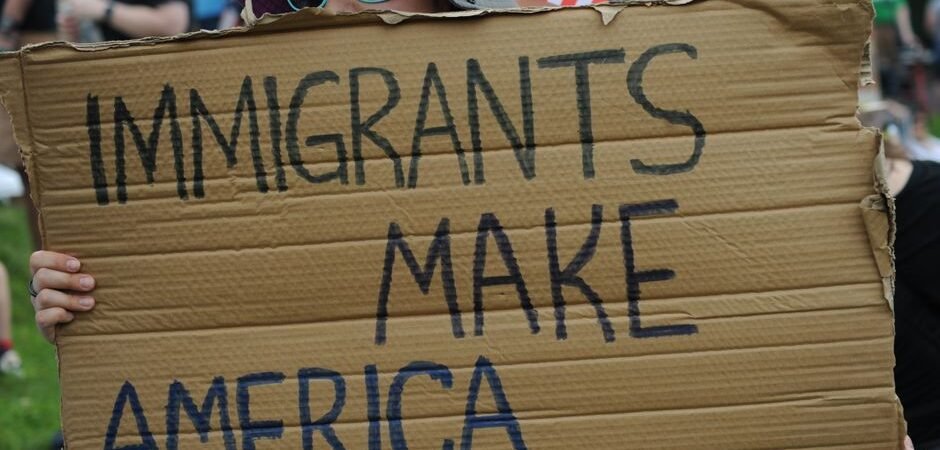 IMMIGRANTS
MAKE
AMERICA